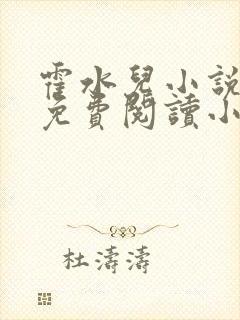 霍水兒小說
免費閱讀小
杜濤濤